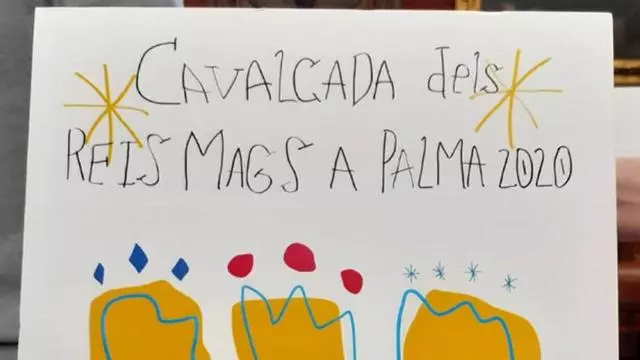 CAVALCADA dels
REIS MAGS A PALMA 2020